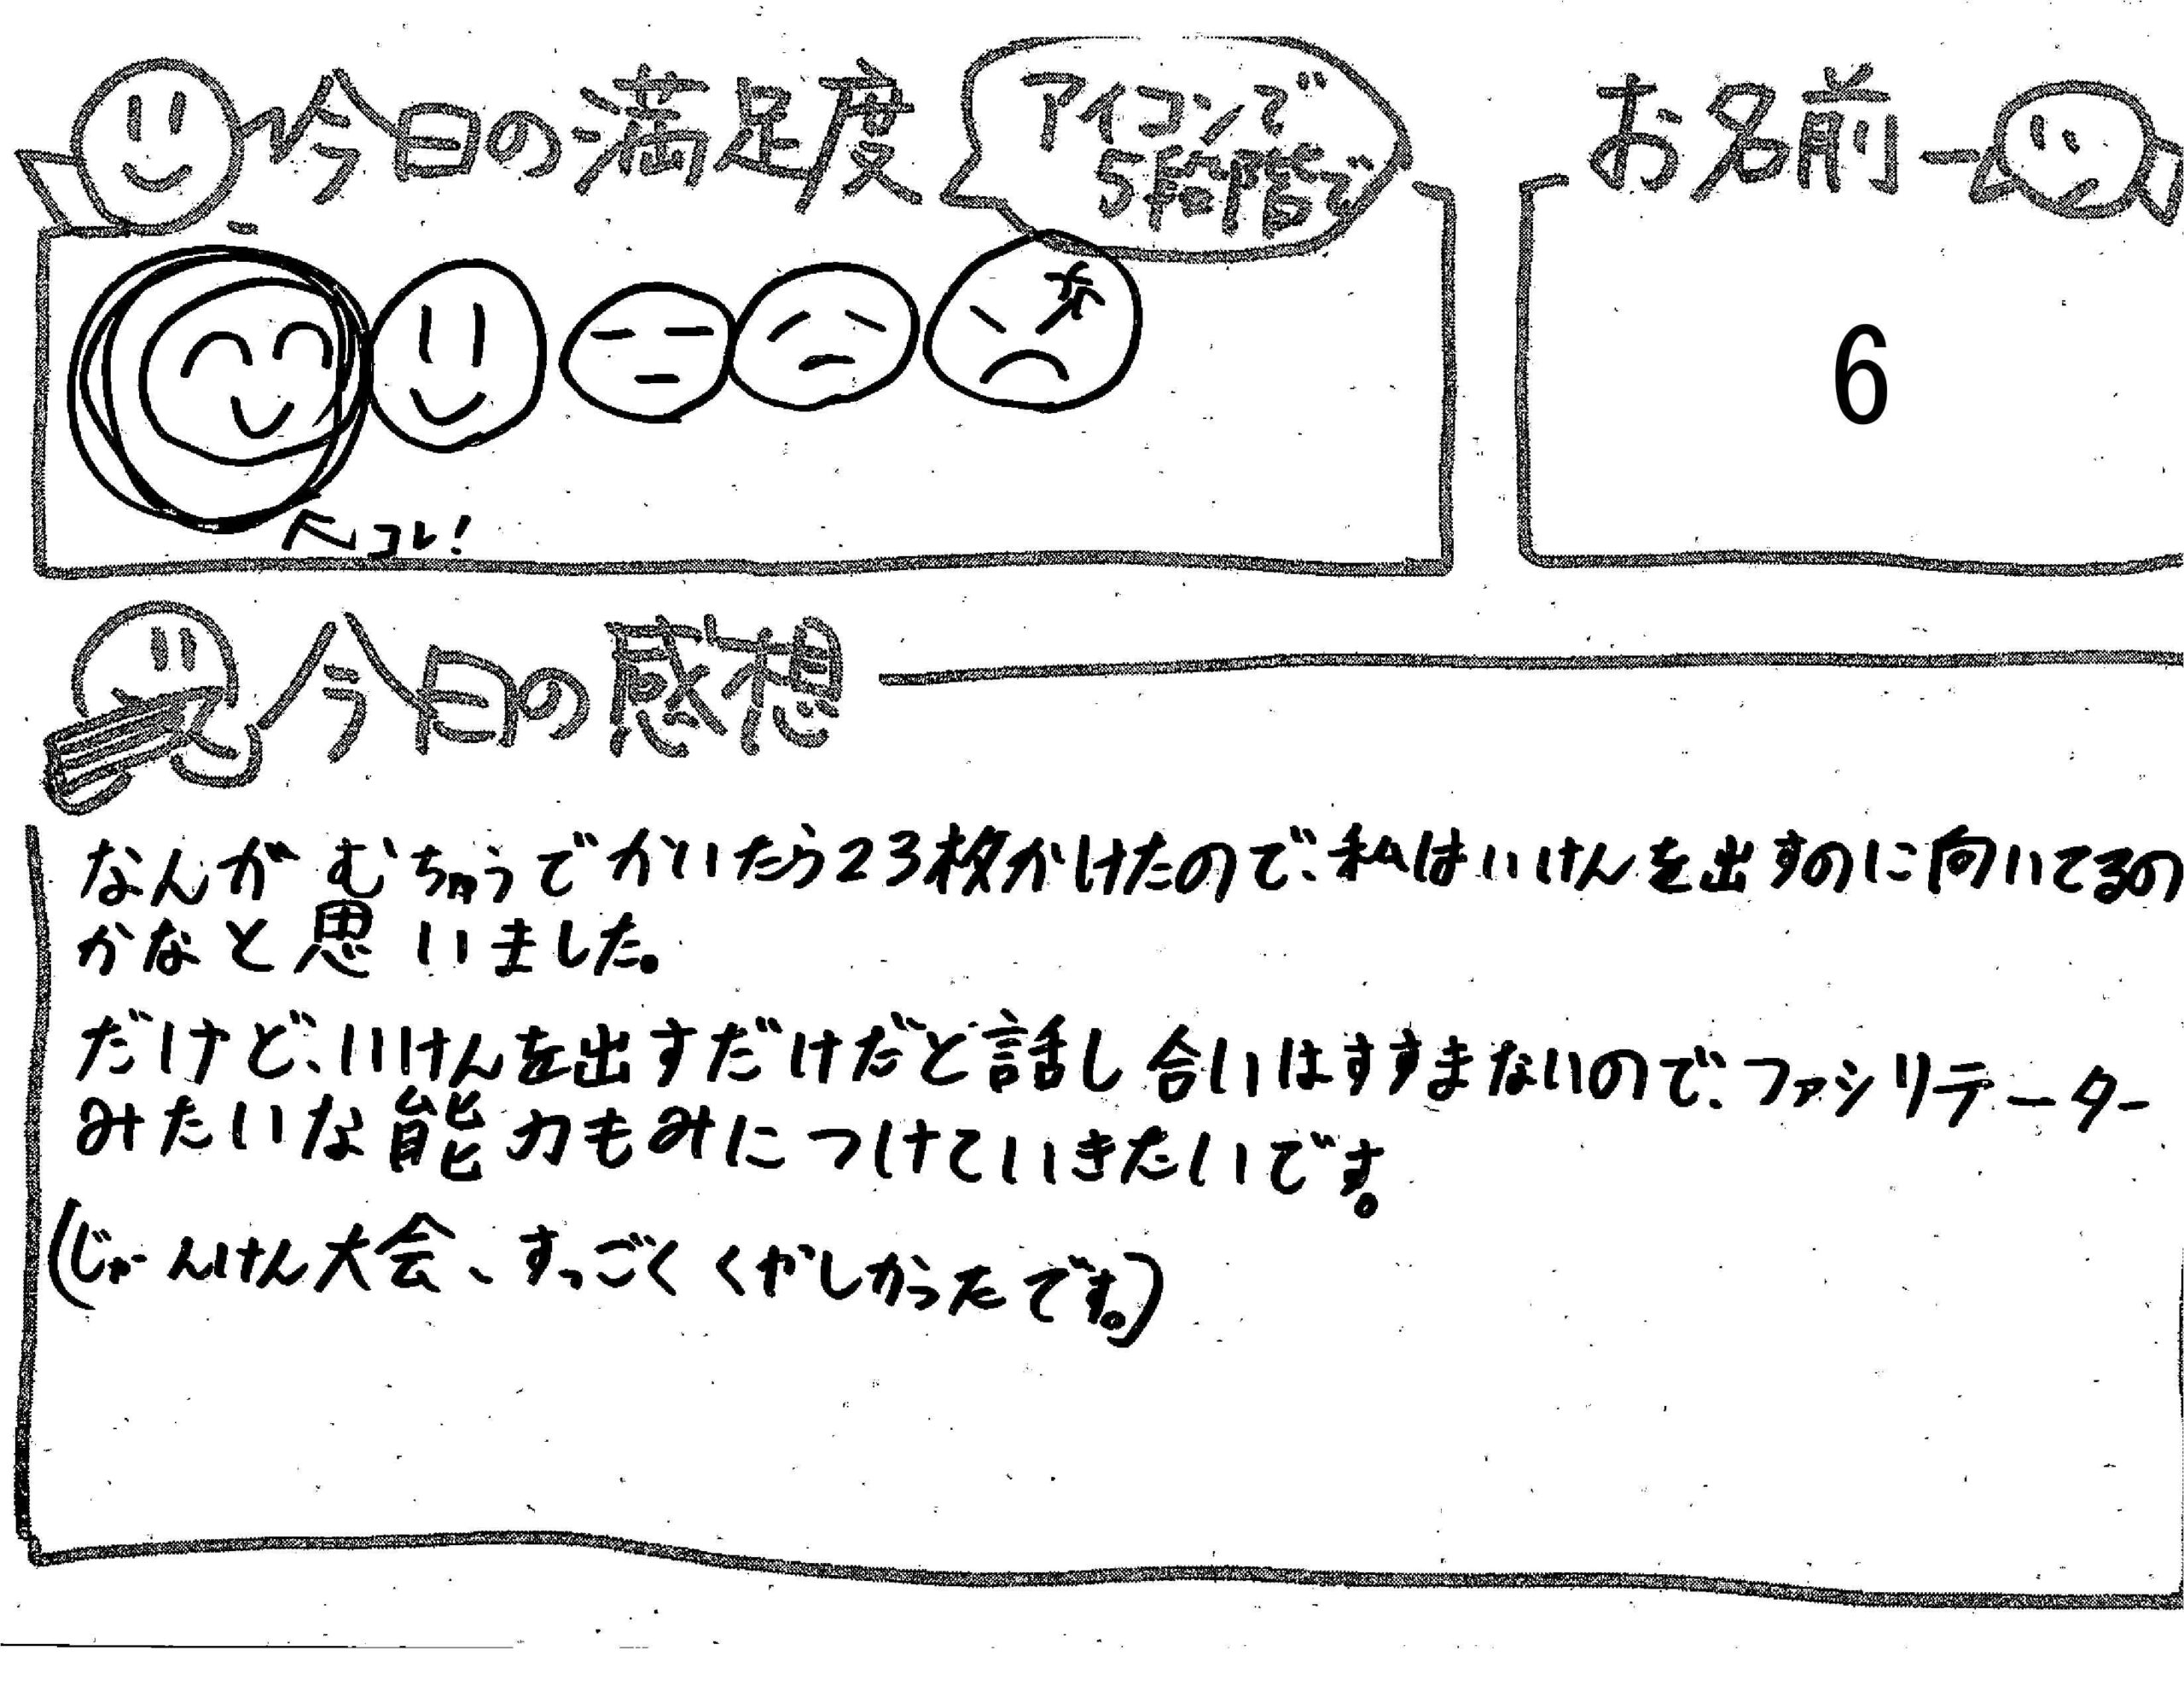 今日の満足度
アイコンで
5段階で
お名前
6
コレ!
今日の感想
なんか むちゅうでかいたら23枚かけたので、私はいけんを出すのに向いてるの
かなと思いました。
だけど、いけんを出すだけだと話し合いはすすまないので、ファシリテーター
みたいな能力もみにつけていきたいです。
(じゃんけん大会、すっごくくやしかったです。)